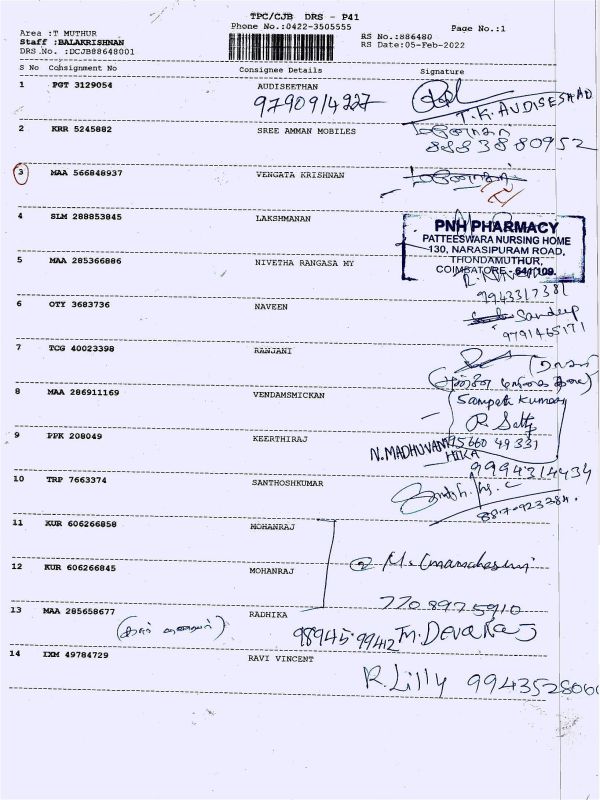 TPC/CJB DRS - P41
Area :T MUTHUR
Phone No.:0422-3505555
Page No.:1
Staff :BALAKRISHNAN
RS No.:886480
DRS.No. :DCJB88648001
RS Date:05-Feb-2022
S No Consignment No Consignee Details Signature
1 PGT 3129054 AUDISEETHAN
9790914227
T.K. AUDISESHAD
2 KRR 5245882 SREE AMMAN MOBILES
8883880952
3 MAA 566848937 VENGATA KRISHNAN
4 SLM 288853845 LAKSHMANAN
PNH PHARMACY
PATTEESWARA NURSING HOME
130, NARASIPURAM ROAD,
THONDAMUTHUR,
COIMBATORE - 641 109.
5 MAA 285366886 NIVETHA RANGASA MY
9943317381
6 OTY 3683736 NAVEEN
Sandeep
9791465171
7 TCG 40023398 RANJANI
8 MAA 286911169 VENDAMSMICKAN
Sampath Kumar
9 PPK 208049 KEERTHIRAJ
N. MADHUVANTHIKA
95660 49331
9994314434
10 TRP 7663374 SANTHOSHKUMAR
11 KUR 606266858 MOHANRAJ
12 KUR 606266845 MOHANRAJ
7708975910
13 MAA 285658677 RADHIKA
98945 99412 M. Devaraj
14 IXM 49784729 RAVI VINCENT
R. Lilly 9943528060